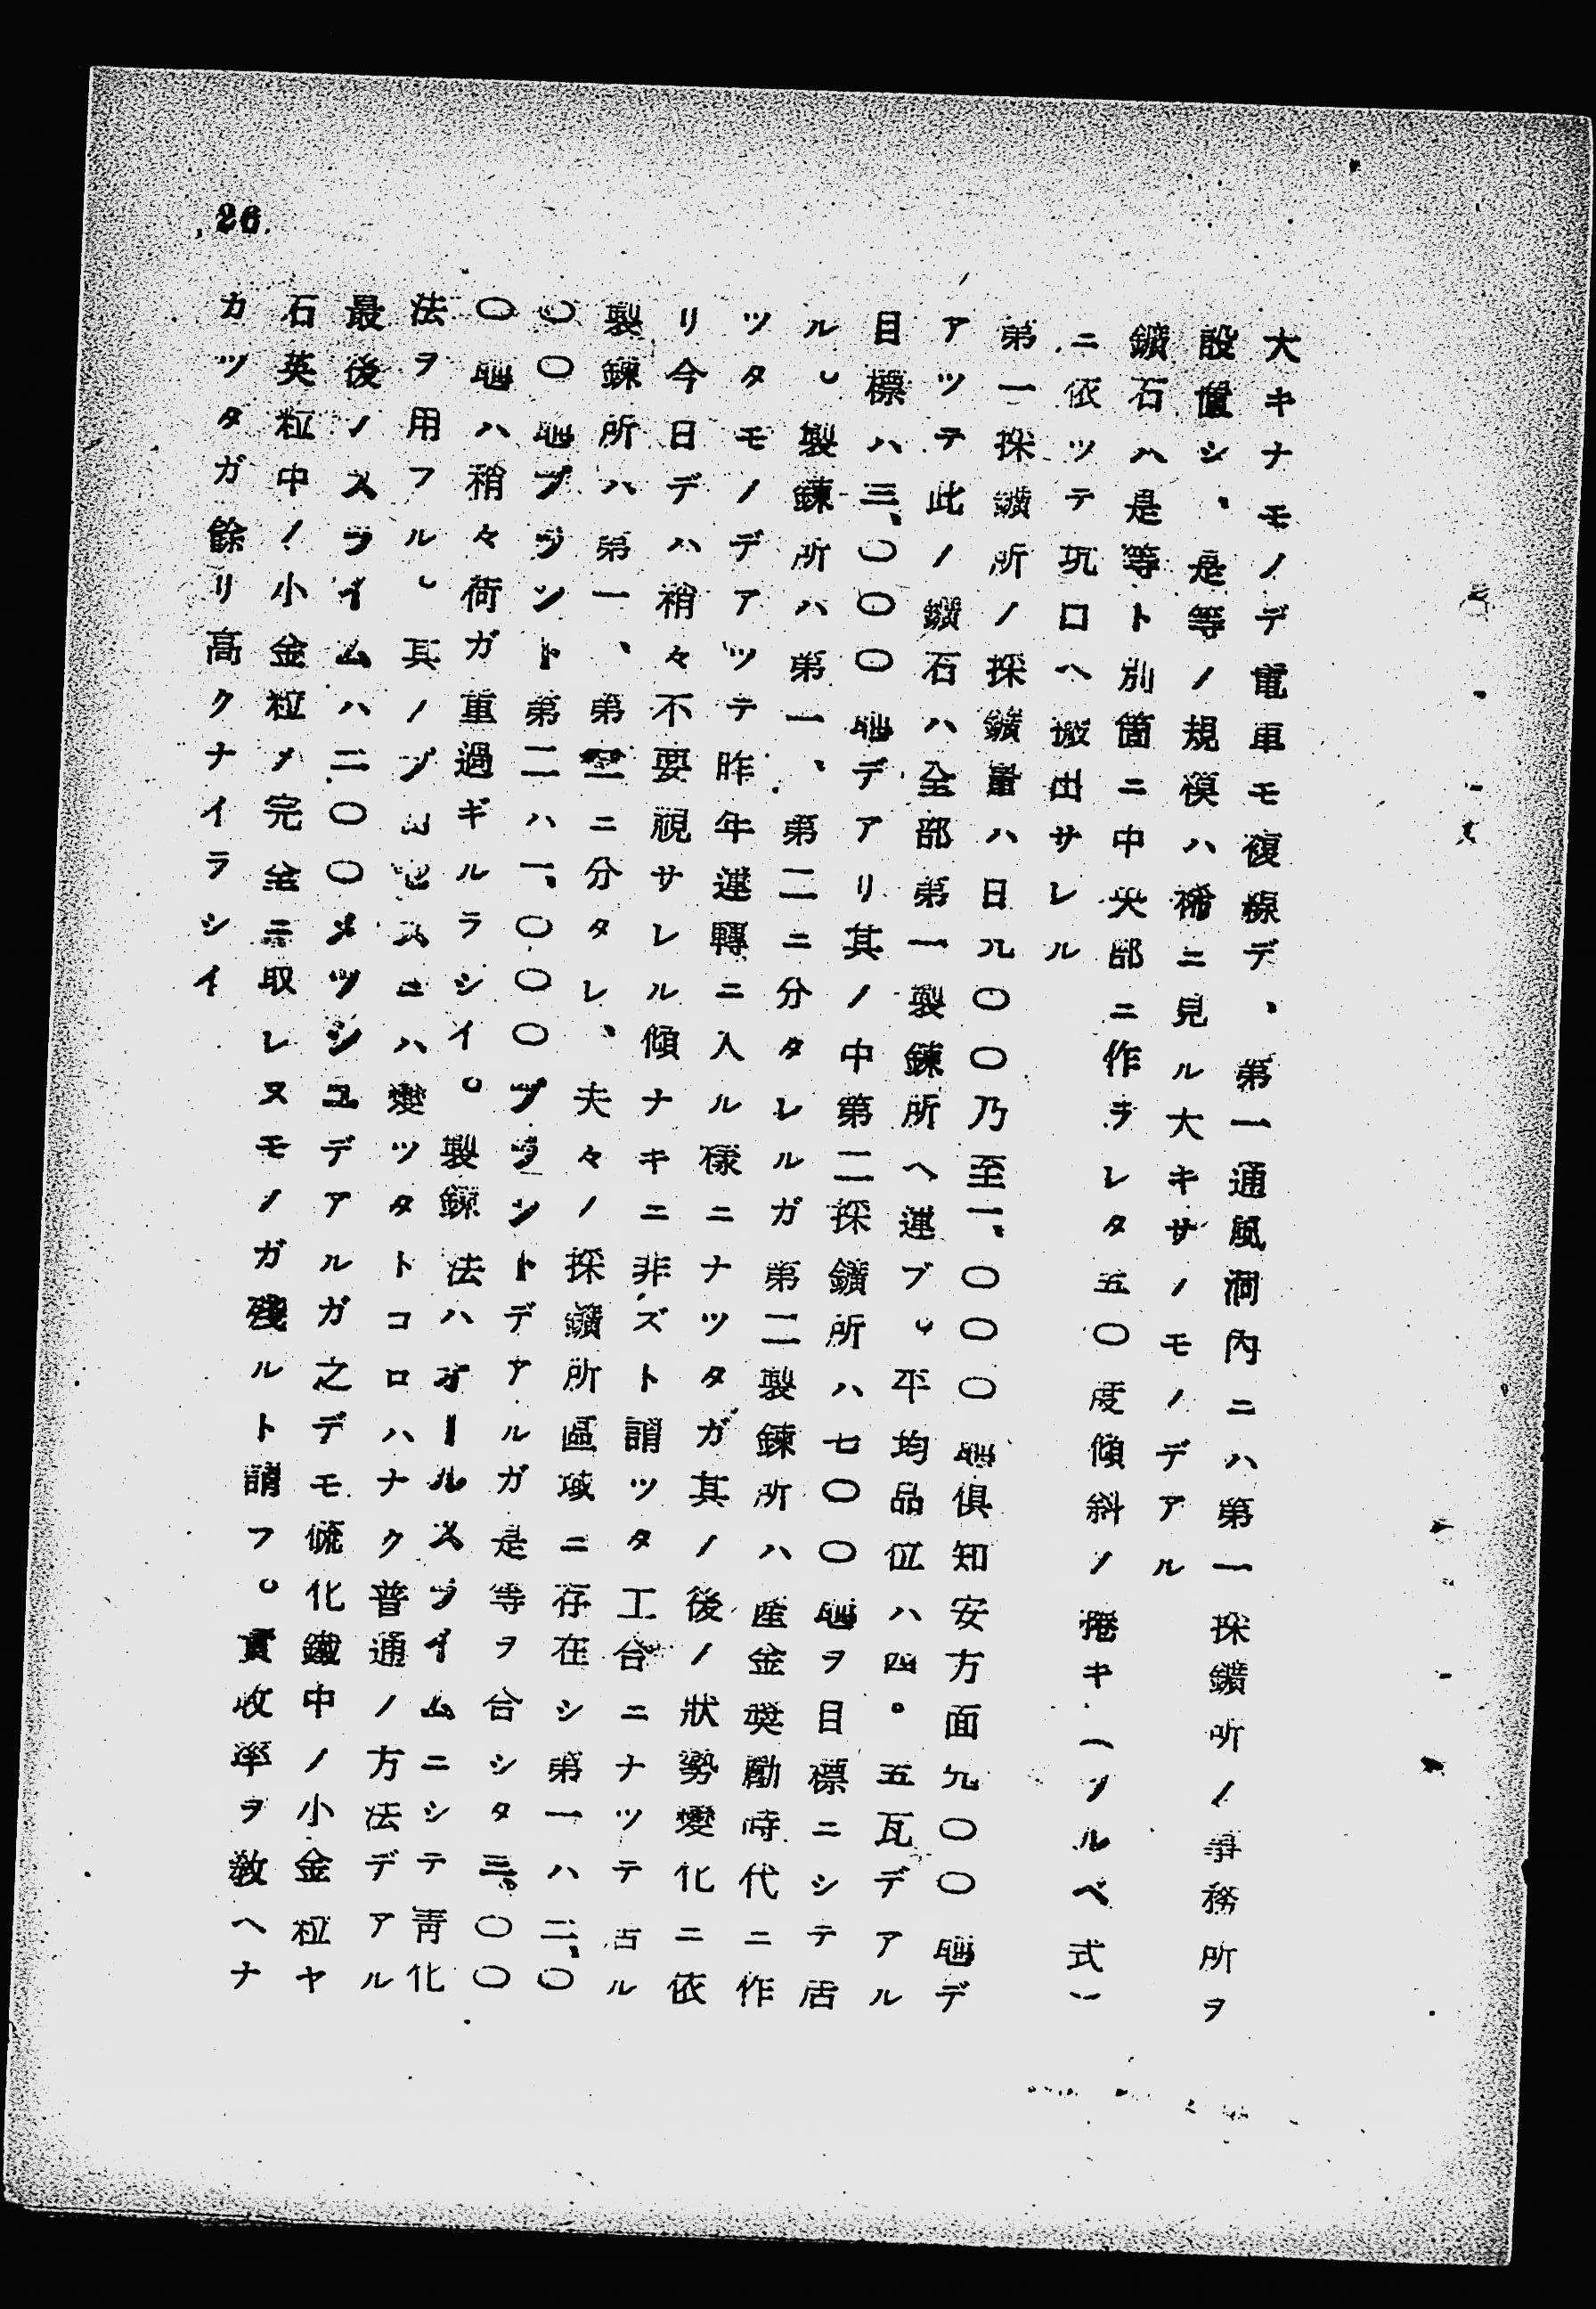 26.
大キナモノデ電車モ複線デ、第一通風洞內ニハ第一採鑛所ノ事務所ヲ
設置シ、是等ノ規模ハ稀ニ見ル大キサノモノデアル
鑛石ハ是等ト別箇ニ中央部ニ作ラレタ五〇度傾斜ノ捲キ(ツルベ式)
ニ依ツテ坑口ヘ搬出サレル
第一採鑛所ノ採鑛量ハ日九〇〇乃至一、〇〇〇瓲俱知安方面九〇〇瓲デ
アツテ此ノ鑛石ハ全部第一製鍊所ヘ運ブ。平均品位ハ四。五瓦デアル
目標ハ三、〇〇〇瓲デアリ其ノ中第二採鑛所ハ七〇〇瓲ヲ目標ニシテ居
ル。製鍊所ハ第一、第二ニ分タレルガ第二製鍊所ハ產金奬勵時代ニ作
ツタモノデアツテ昨年運轉ニ入ル樣ニナツタガ其ノ後ノ狀勢變化ニ依
リ今日デハ稍々不要視サレル傾ナキニ非ズト謂ツタ工合ニナツテ居ル
製鍊所ハ第一、第二ニ分タレ、夫々ノ採鑛所區域ニ存在シ第一ハ二、〇
〇〇瓲プラント第二ハ一、〇〇〇プラントデアルガ是等ヲ合シタ三、〇〇
〇瓲ハ稍々荷ガ重過ギルラシイ。製鍊法ハオールスライムニシテ靑化
法ヲ用フル。其ノプロセスニハ變ツタトコロハナク普通ノ方法デアル
最後ノスライムハ二〇〇メツシユデアルガ之デモ硫化鐵中ノ小金粒ヤ
石英粒中ノ小金粒ノ完全ニ取レヌモノガ殘ルト謂フ。實收率ヲ敎ヘナ
カツタガ餘リ高クナイラシイ